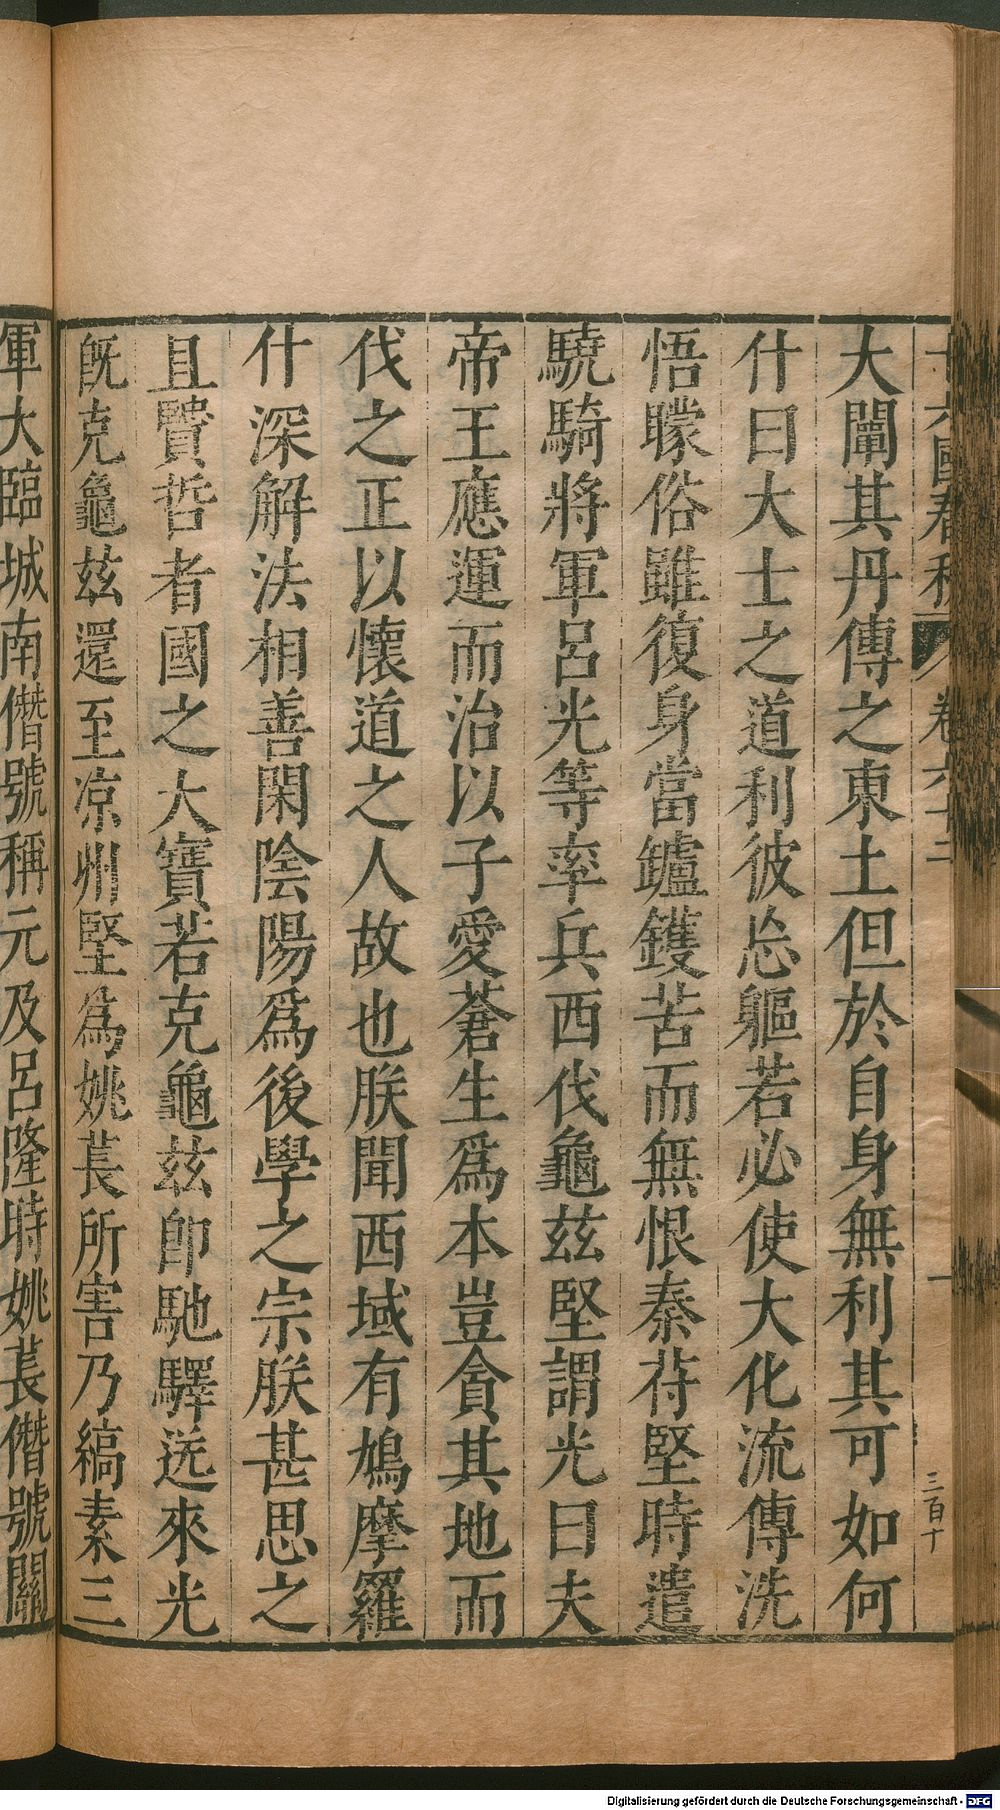 十六國春秋 卷六十二 一 三百十
大闡其丹傳之東土但於自身無利其可如何
什曰大士之道利彼忘軀若必使大化流傳洗
悟矇俗雖復身當鑪鑊苦而無恨秦苻堅時遣
驍騎將軍呂光等率兵西伐龜茲堅謂光曰夫
帝王應運而治以子愛蒼生爲本豈貪其地而
伐之正以懷道之人故也朕聞西域有鳩摩羅
什深解法相善閑陰陽爲後學之宗朕甚思之
且賢哲者國之大寶若克龜茲卽馳驛送來光
旣克龜茲還至凉州堅爲姚萇所害乃縞素三
軍大臨城南僭號稱元及呂隆時姚萇僭號關
Digitalisierung gefördert durch die Deutsche Forschungsgemeinschaft - DFG